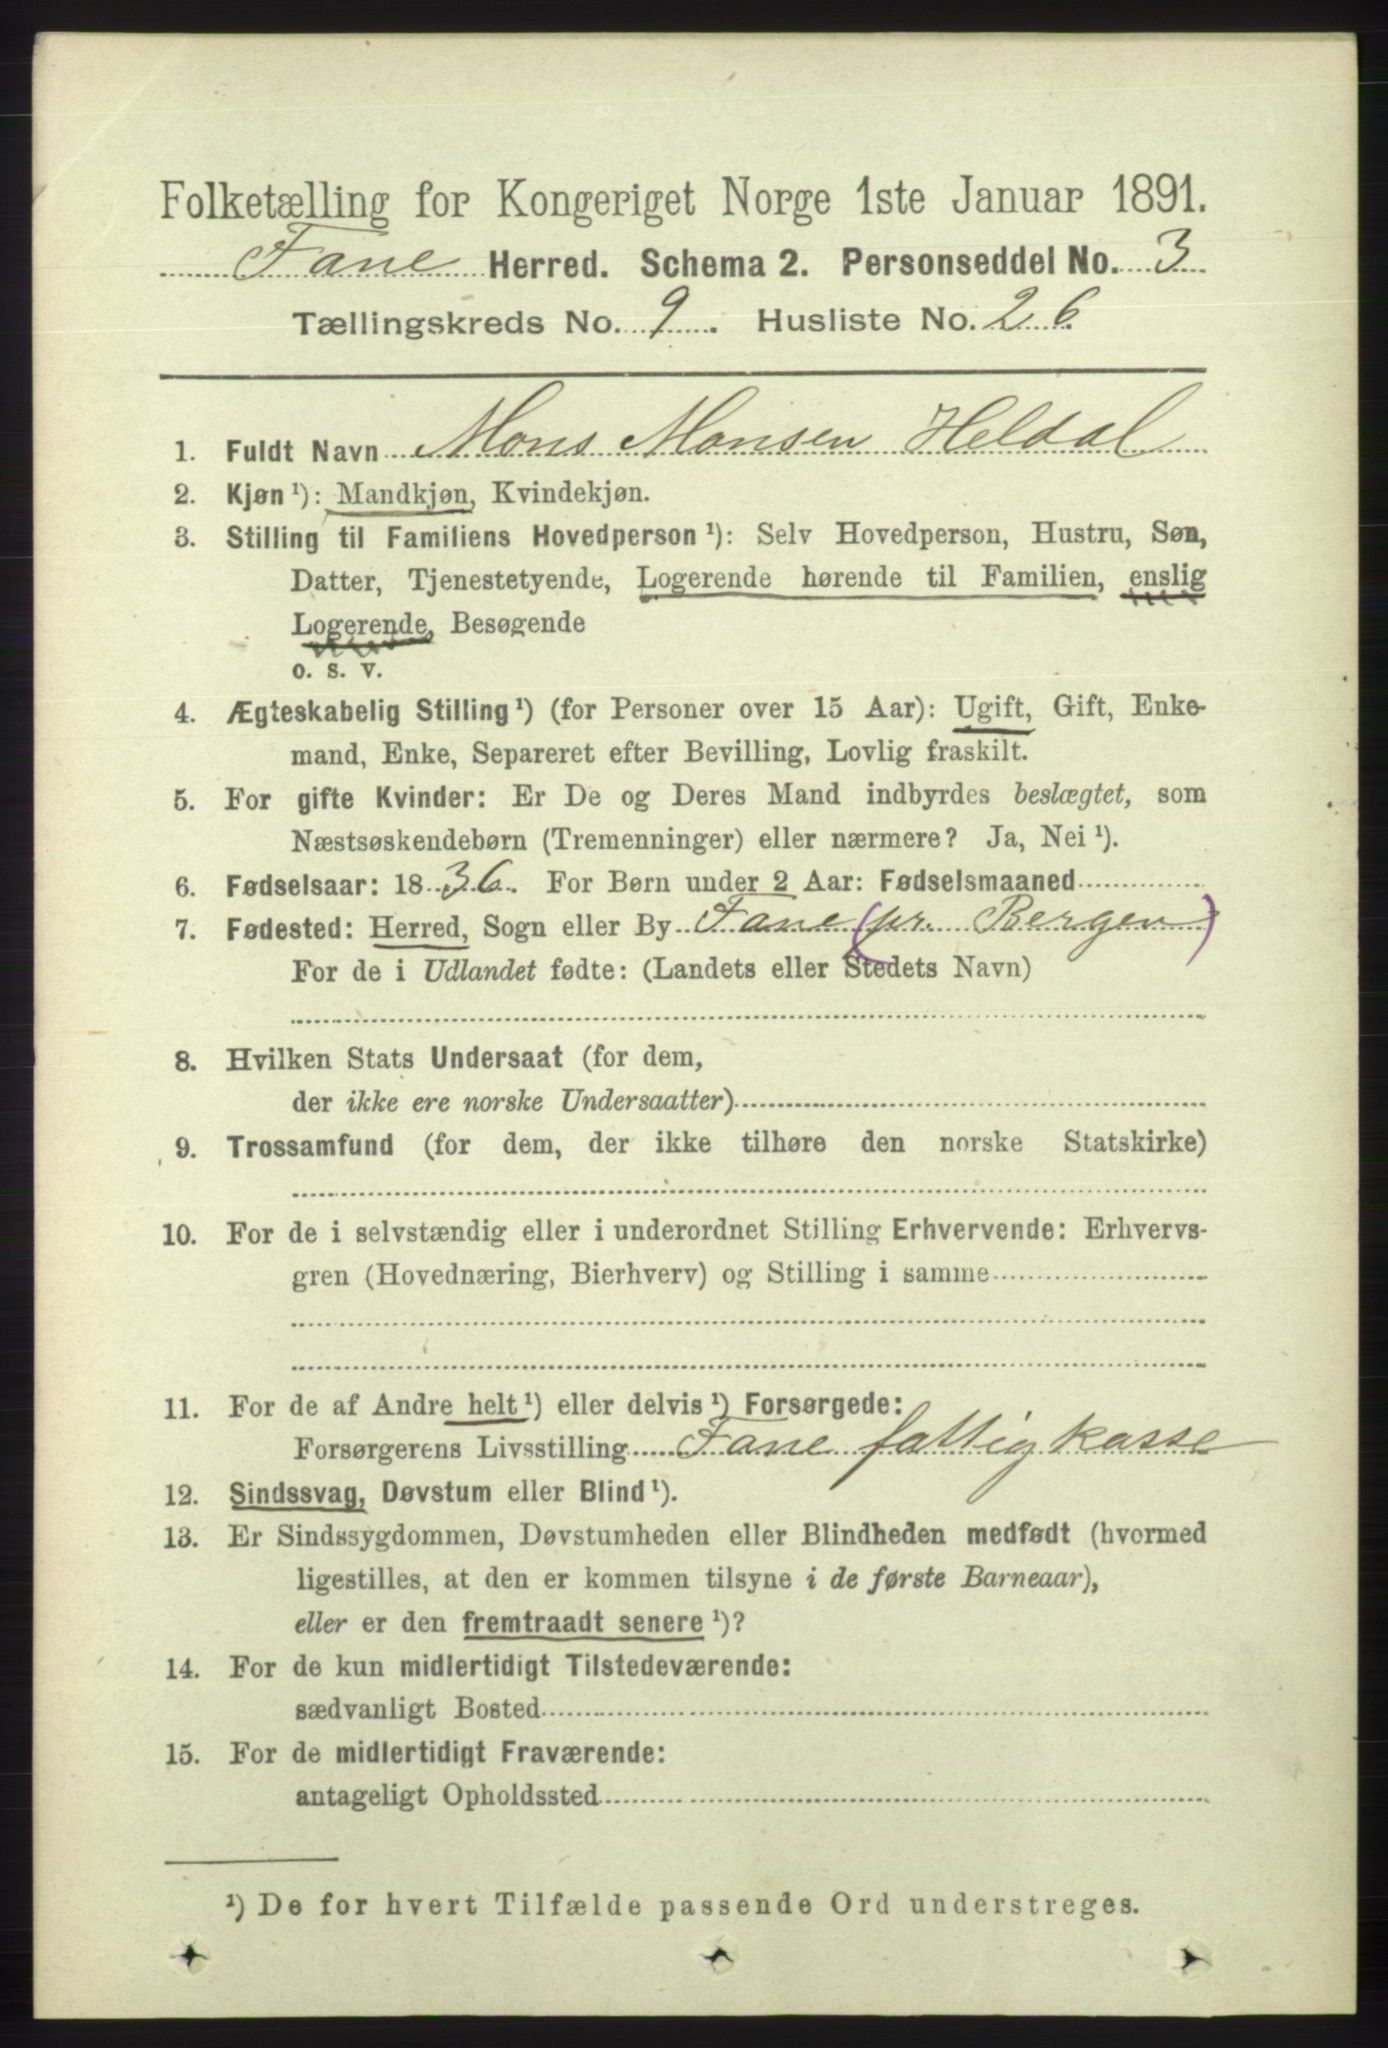 Folketælling for Kongeriget Norge 1ste Januar 1891.
Fane Herred. Schema 2. Personseddel No. 3
Tællingskreds No. 9. Husliste No. 26.
1. Fuldt Navn Mons Monsen Heldal
2. Kjøn ¹): Mandkjøn, Kvindekjøn.
3. Stilling til Familiens Hovedperson ¹): Selv Hovedperson, Hustru, Søn,
Datter, Tjenestetyende, Logerende hørende til Familien, enslig
Logerende, Besøgende
o. s. v.
4. Ægteskabelig Stilling ¹) (for Personer over 15 Aar): Ugift, Gift, Enke-
mand, Enke, Separeret efter Bevilling, Lovlig fraskilt.
5. For gifte Kvinder: Er De og Deres Mand indbyrdes beslægtet, som
Næstsøskendebørn (Tremenninger) eller nærmere? Ja, Nei ¹).
6. Fødselsaar: 1836. For Børn under 2 Aar: Fødselsmaaned
7. Fødested: Herred, Sogn eller By Fane (pr. Bergen)
For de i Udlandet fødte: (Landets eller Stedets Navn)
8. Hvilken Stats Undersaat (for dem,
der ikke ere norske Undersaatter)
9. Trossamfund (for dem, der ikke tilhøre den norske Statskirke)
10. For de i selvstændig eller i underordnet Stilling Erhvervende: Erhvervs-
gren (Hovednæring, Bierhverv) og Stilling i samme
11. For de af Andre helt ¹) eller delvis ¹) Forsørgede:
Forsørgerens Livsstilling Fane fattigkasse
12. Sindssvag, Døvstum eller Blind ¹).
13. Er Sindssygdommen, Døvstumheden eller Blindheden medfødt (hvormed
ligestilles, at den er kommen tilsyne i de første Barneaar),
eller er den fremtraadt senere ¹)?
14. For de kun midlertidigt Tilstedeværende:
sædvanligt Bosted
15. For de midlertidigt Fraværende:
antageligt Opholdssted
¹) De for hvert Tilfælde passende Ord understreges.